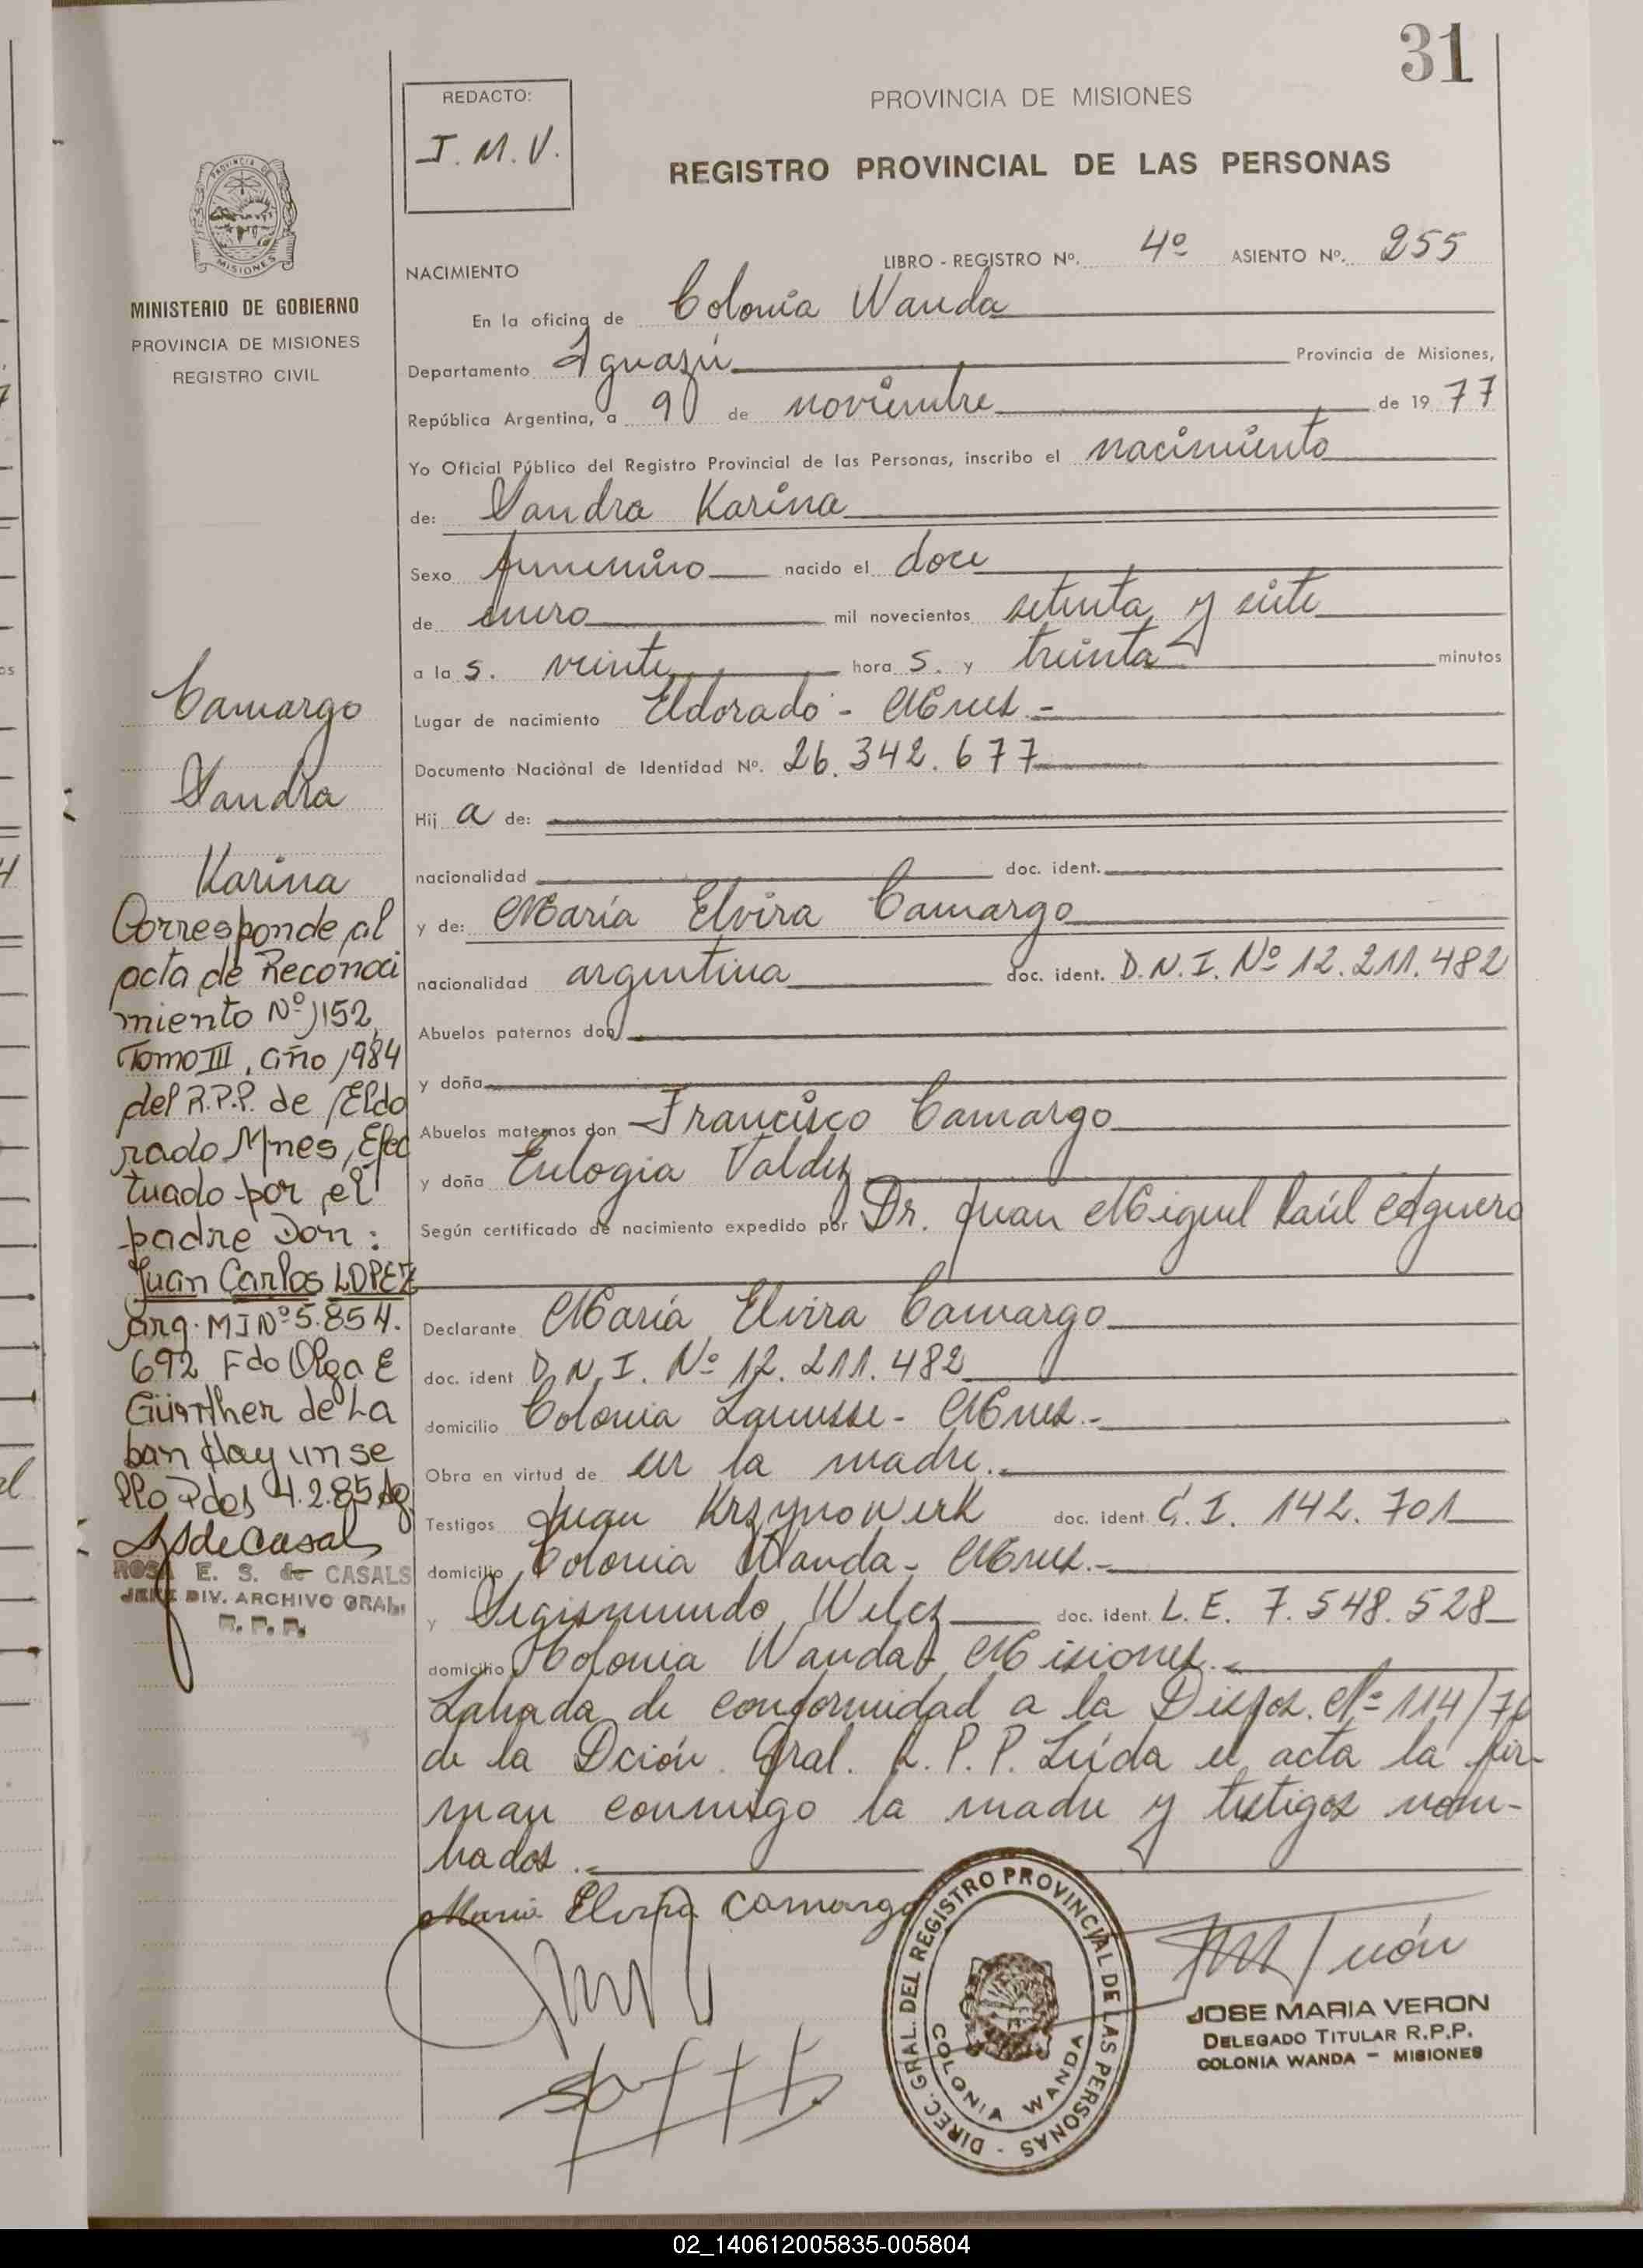 31
REDACTO:
J. M. V.
PROVINCIA DE MISIONES
REGISTRO PROVINCIAL DE LAS PERSONAS
PROVINCIA DE
MISIONES
MINISTERIO DE GOBIERNO
PROVINCIA DE MISIONES
REGISTRO CIVIL
LIBRO - REGISTRO Nº. 4º ASIENTO Nº. 255
NACIMIENTO
En la oficina de Colonia Wanda
Departamento Iguazú Provincia de Misiones,
República Argentina, a 9 de noviembre de 19 77
Yo Oficial Público del Registro Provincial de las Personas, inscribo el nacimiento
de: Sandra Karina
Sexo femenino nacido el doce
de enero mil novecientos setenta y siete
a la s. veinte hora s. y treinta minutos
Lugar de nacimiento Eldorado - Mnes.-
Documento Nacional de Identidad Nº. 26.342.677
Hij a de:
nacionalidad doc. ident.
y de: María Elvira Camargo
nacionalidad argentina doc. ident. D.N.I. Nº 12.211.482
Abuelos paternos don
y doña
Abuelos maternos don Francisco Camargo
y doña Eulogia Valdez
Según certificado de nacimiento expedido por Dr. Juan Miguel Raúl Agüero
Declarante María Elvira Camargo
doc. ident D.N.I. Nº 12.211.482
domicilio Colonia Lanusse - Mnes.-
Obra en virtud de ser la madre.-
Testigos Juan Krzynowerk doc. ident. C.I. 142.701
domicilio Colonia Wanda - Mnes.-
y Segismundo Wilcz doc. ident. L.E. 7.548.528
domicilio Colonia Wanda - Misiones.-
Labrada de conformidad a la Dispos. Nº 114/76
de la Dción. Gral. R.P.P. Leída el acta la fir-
man conmigo la madre y testigos nom-
brados.-
Camargo
Sandra
Karina
Corresponde al
acta de Reconoci
miento Nº 152
Tomo III, año 1984
del R.P.P. de Eldo
rado Mnes, Efec
tuado por el
padre Don:
Juan Carlos LOPEZ
arg. MI Nº 5.854.
692 Fdo Olga E
Günther de La
ban Hay un se
llo Pdas 4.2.85
ROSA E. S. de CASALS
JEFE DIV. ARCHIVO GRAL.
R. P. P.
Maria Elvira Camargo
DIREC. GRAL. DEL REGISTRO PROVINCIAL DE LAS PERSONAS -
COLONIA WANDA
JOSE MARIA VERON
DELEGADO TITULAR R.P.P.
COLONIA WANDA - MISIONES
02_140612005835-005804